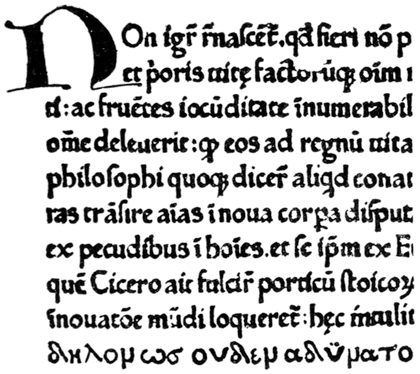 NOn igr̃ r̃nascēt̃. qd̃ fieri nō p
et p̄oris uitę factorūqꝫ oīm
ti: ac fruētes iocūditate īnumerabil
om̄e deleuerit: ꝙ eos ad regnū uita
philoſophi quoqꝫ dicer̃ aliqd̃ conat
ras trāſire aīas ī noua corꝑa diſput
ex pecudibus ī hoīes. et ſe ip̄m ex E
quē Cicero ait fulcir̃ porticū ſtoicoꝝ
īnouatōe mūdi loqueret̃: hęc
δηλομωσ ουδεμ αδϋματο